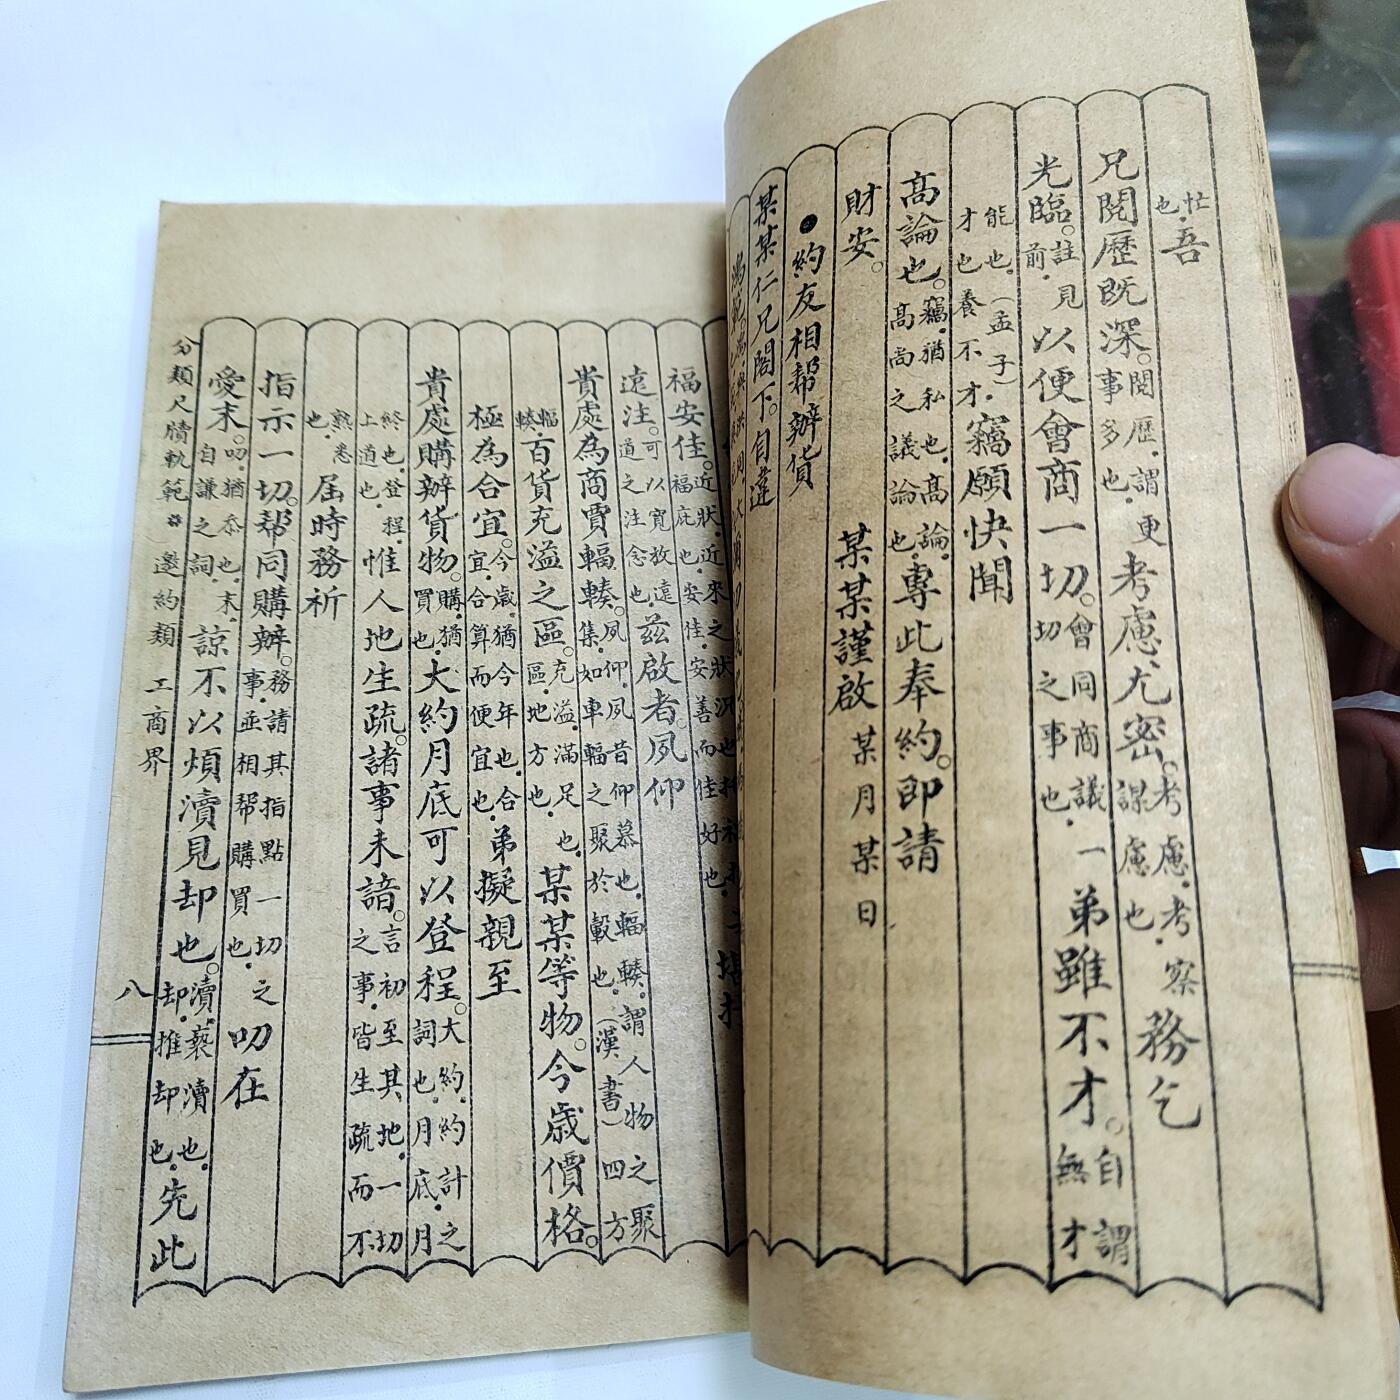 忙也。吾
兄閱歷既深。閱歷。謂更事多也。考慮尤密。考慮。考察謀慮也。務乞
光臨。註見前。以便會商一切。會同商議一切之事也。弟雖不才。自謂無才
能也。(孟子)才也養不才。竊願快聞
高論也。竊。猶私也。高論。高尚之議論也。專此奉約。即請
財安。
某某謹啟 某月某日
●約友相幫辦貨
某某仁兄閣下。自違
福安佳。近狀。近來之狀況也
遠注。可以寬放遠道之注念也。茲啟者。夙仰
貴處為商賈輻輳。夙仰。夙昔仰慕也。輻輳。謂人物之聚集。如車輻之聚於轂也。(漢書)四方
輻輳百貨充溢之區。充溢。滿足也。區。地方也。某某等物。今歲價格。
極為合宜。今歲。猶今年也。合宜。合算而便宜也。弟擬親至
貴處購辦貨物。購。猶買也。大約月底可以登程。大約。約計之詞也。月底。月
終也。登程。上道也。惟人地生疏。諸事未諳。言初至其地。一切之事。皆生疏而不
熟悉也。屆時務祈
指示一切。幫同購辦。務請其指點一切之事。並相幫購買也。叨在
愛末。叨。猶忝也。末。自謙之詞。諒不以煩瀆見却也。瀆。褻瀆也。却。推却也。先此
分類尺牘軌範 邀約類 工商界 八